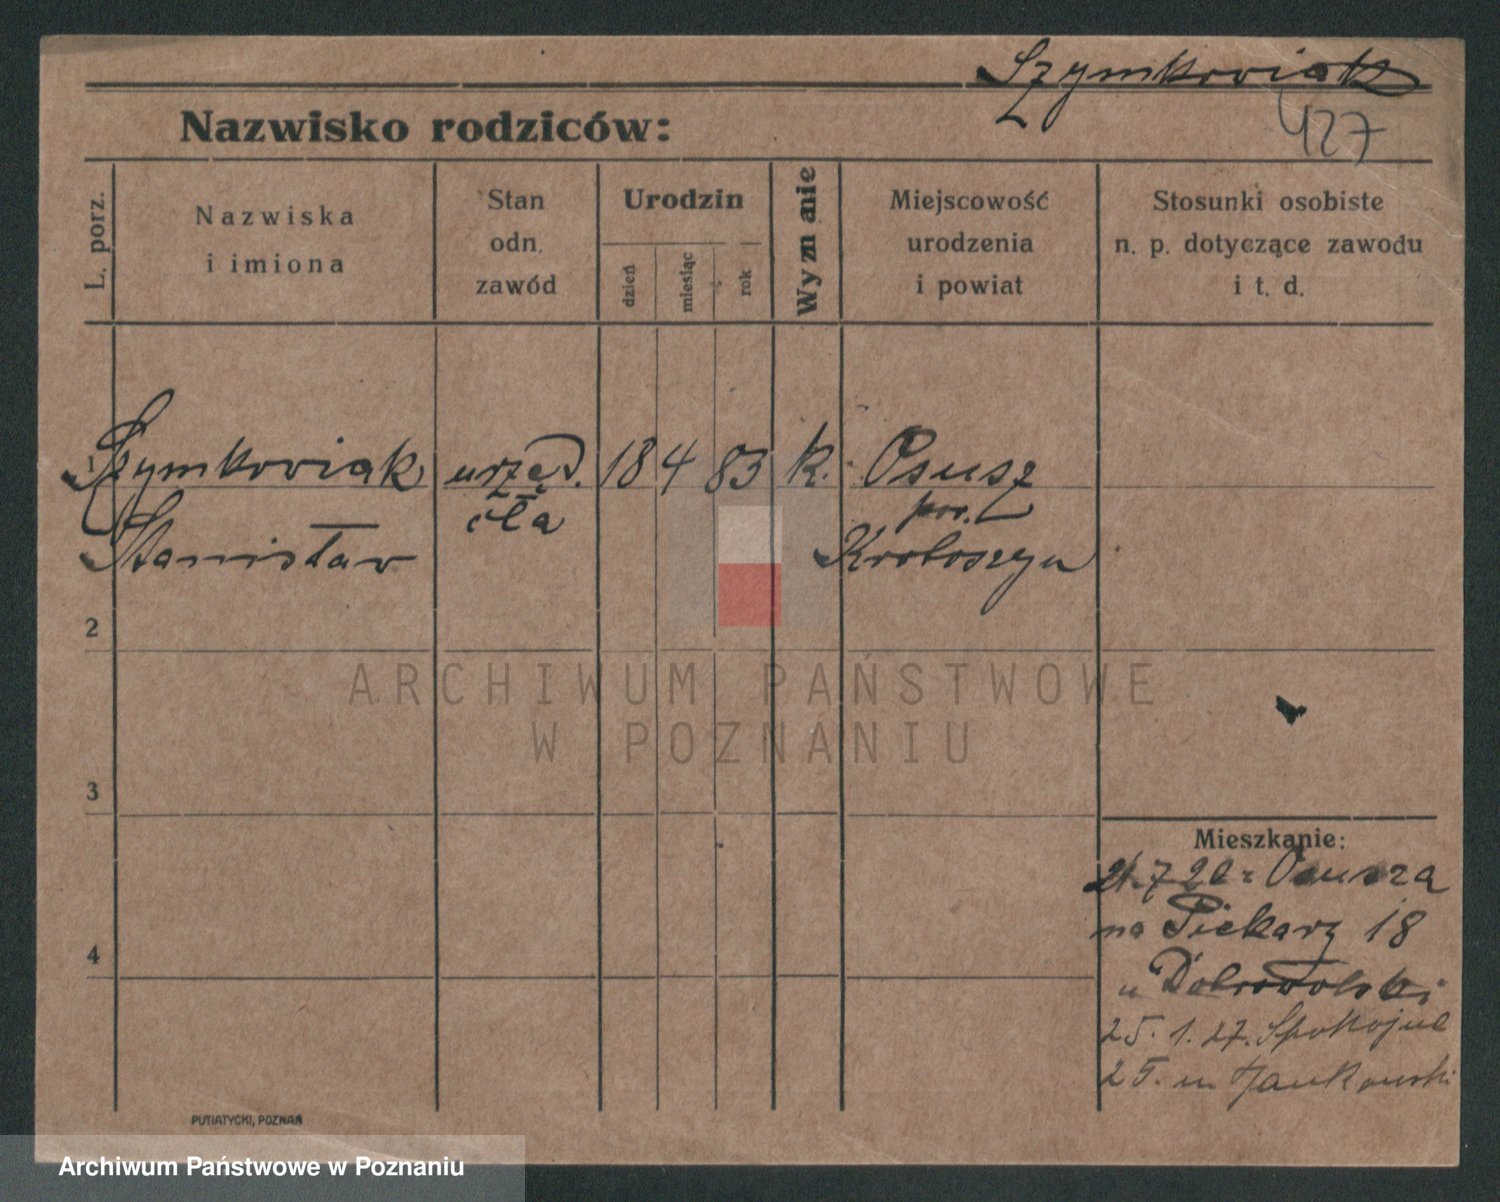 Szymkowiak
427
Nazwisko rodziców:
L. porz.
Nazwiska
i imiona
Stan
odn.
zawód
Urodzin
dzień
miesiąc
rok
Wyznanie
Miejscowość
urodzenia
i powiat
Stosunki osobiste
n. p. dotyczące zawodu
i t. d.
1
Szymkowiak urzęd. 18 4 83 k. Osusz
cła pow.
Stanisław Krotoszyn
2
3
4
Mieszkanie:
21.7.20 Osusza
na Piekary 18
u Dobrowolski
25. 1. 27. Spokojna
25. u Jankowski
PUTIATYCKI, POZNAŃ
ARCHIWUM PAŃSTWOWE
W POZNANIU
Archiwum Państwowe w Poznaniu